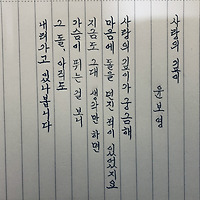 사랑의 깊이
윤보영
사랑의 깊이가 궁금해
마음에 돌을 던진 적이 있었지요
지금도 그대 생각만 하면
가슴이 뛰는 걸 보니
그 돌, 아직도
내려가고 있나 봅니다